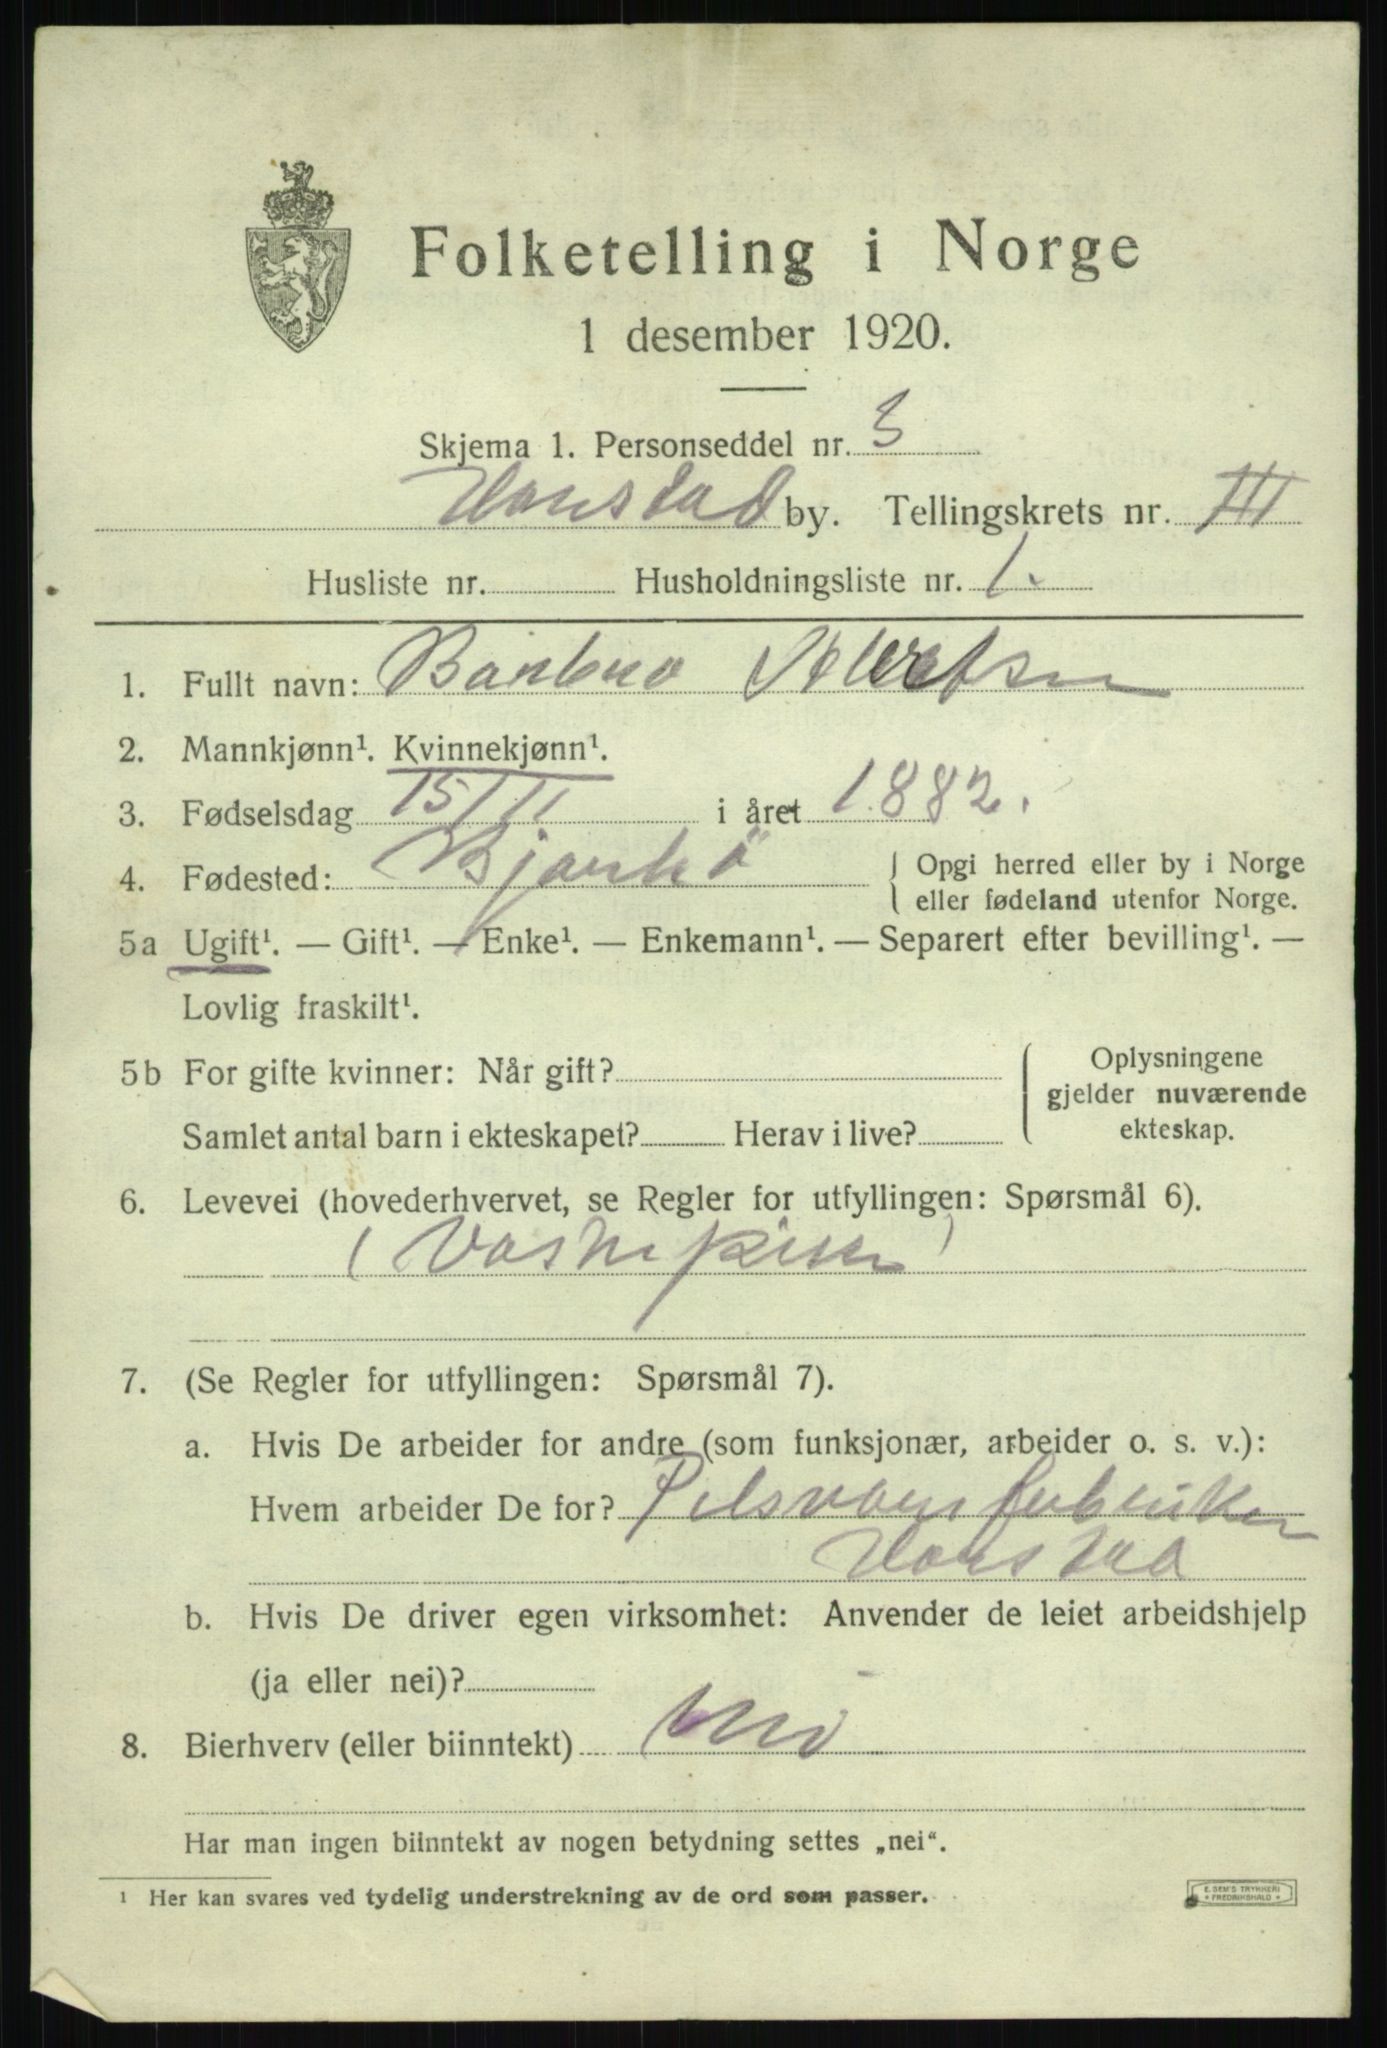 Folketelling i Norge
1 desember 1920.
Skjema 1. Personseddel nr. 3
Harstad by. Tellingskrets nr. III
Husliste nr. Husholdningsliste nr. 1.
1. Fullt navn: Barbro
2. Mannkjønn¹. Kvinnekjønn¹.
3. Fødselsdag 15/11 i året 1882.
4. Fødested: Bjarkö { Opgi herred eller by i Norge
eller fødeland utenfor Norge.
5a Ugift¹. — Gift¹. — Enke¹. — Enkemann¹. — Separert efter bevilling¹. —
Lovlig fraskilt¹.
5b For gifte kvinner: Når gift? { Oplysningene
gjelder nuværende
Samlet antal barn i ekteskapet? Herav i live? ekteskap.
6. Levevei (hovederhvervet, se Regler for utfyllingen: Spørsmål 6).
(Vaskepike)
7. (Se Regler for utfyllingen: Spørsmål 7).
a. Hvis De arbeider for andre (som funksjonær, arbeider o. s. v.):
Hvem arbeider De for? Pelsvarefabriken
Harstad
b. Hvis De driver egen virksomhet: Anvender de leiet arbeidshjelp
(ja eller nei)?
8. Bierhverv (eller biinntekt) nei
Har man ingen biinntekt av nogen betydning settes „nei“.
¹ Her kan svares ved tydelig understrekning av de ord som passer.
E. SEM'S TRYKKERI
* FREDRIKSHALD *